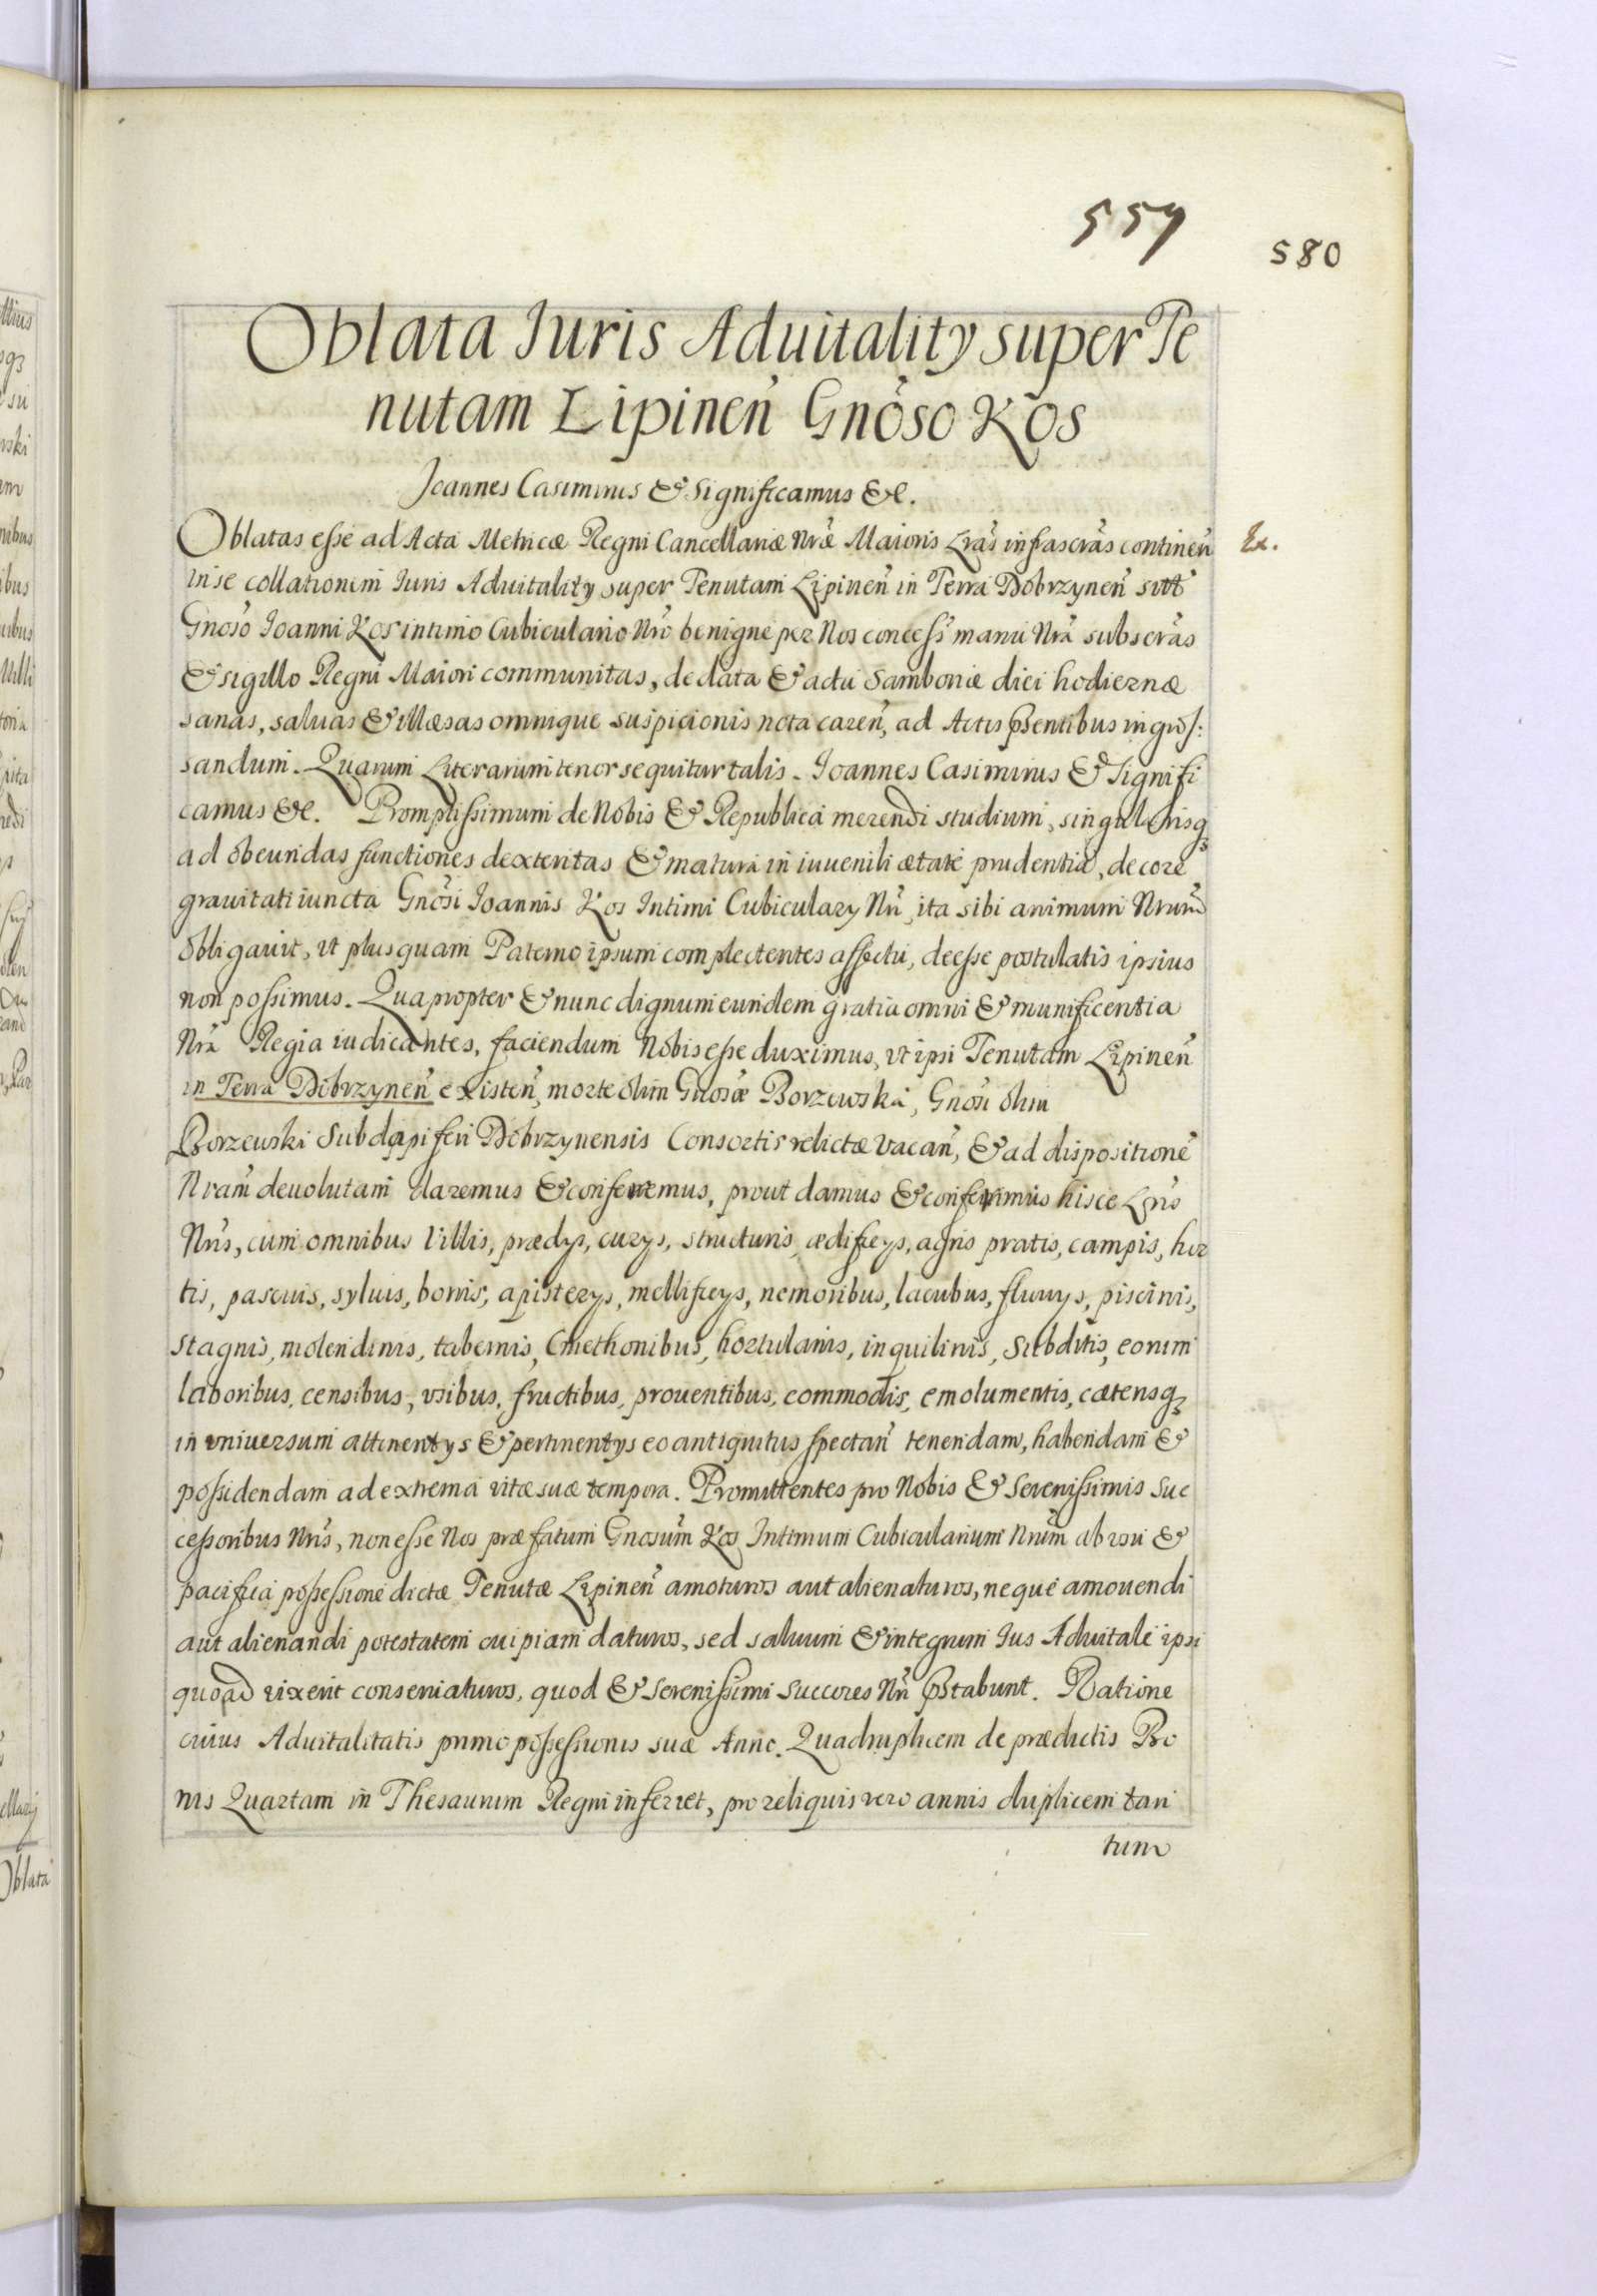 557
580
Oblata Iuris Aduitalitÿ super Te
nutam Lipinen̄ Gnōso Kos
Joannes Casimirus & Significamus &c.
Oblatas esse ad Acta Metricæ Regni Cancellariæ Nræ̃ Maioris Lrãs infrascrãs continen̄
Ex.
in se collationem Iuris Aduitalitÿ super Tenutam Lipinen̄ in Terra Dobrzynen̄ sitt
Gnoso Ioanni Kos intimo Cubiculario Nrõ benigne per Nos concess̃ manu Nrã subscrãs
& sigillo Regni Maiori communitas, de data & actu Samboriæ diei hodiernæ
sanas, saluas & illæsas omnique suspicionis nota caren̄, ad Actis p̃sentibus ingros:
sandum. Quarum Literarum tenor sequitur talis. Ioannes Casimirus & Signifi
camus &c. Promptissimum de Nobis & Republica merendi studium, singularisq3
ad obeundas functiones dexteritas & matura in iuuenili ætate prudentia, decore
grauitati iuncta Gnõsi Ioannis Kos Intimi Cubicularÿ Nrĩ, ita sibi animum Nrum̃
obligauit, vt plus quam Paterno ipsum complectentes affectu, deesse postulatis ipsius
non possimus. Quapropter & nunc dignum eundem gratia omni & munificentia
Nrã Regia iudicantes, faciendum Nobis esse duximus, vt ipsi Tenutam Lipinen̄
in Terra Dobrzynen̄ existen̄, morte olim Gnosæ Borzewska, Gnosi olim
Borzewski Subdapiferi Dobrzynensis Consortis relictæ vacan̄, & ad dispositionẽ
Nram̃ deuolutam daremus & conferremus, prout damus & conferimus hisce Lrĩs
Nrĩs, cum omnibus Villis, prædÿs, curÿs, structuris, ædificÿs, agris pratis, campis, hor
tis, pascuis, syluis, borris, apisterÿs, mellificÿs, nemoribus, lacubus, fluuÿs, piscinis,
stagnis, molendinis, tabernis, Cmethonibus, hortulanis, inquilinis, Subditis, eorum
laboribus, censibus, vsibus, fructibus, prouentibus, commodis, emolumentis, cæterisq3
in vniuersum attinentÿs & pertinentÿs eo antiquitus spectan̄ tenendam, habendam &
possidendam ad extrema vitæ suæ tempora. Promittentes pro Nobis & Serenissimis Suc
cessoribus Nrĩs, non esse Nos præfatum Gnosum̃ Kos Intimum Cubicularium Nrum̃ ab vsu &
pacifica possessione dictæ Tenutæ Lipinen̄ amoturos aut alienaturos, neque amouendi
aut alienandi potestatem cuipiam daturos, sed saluum & integrum Ius Aduitale ipsi
quoad vixerit conseruaturos, quod & Serenissimi Succores Nrĩ p̃stabunt. Ratione
cuius Aduitalitatis primo possessionis suæ Anno. Quadruplicem de prædictis Bo
nis Quartam in Thesaurum Regni inferret, pro reliquis vero annis duplicem tan
tum